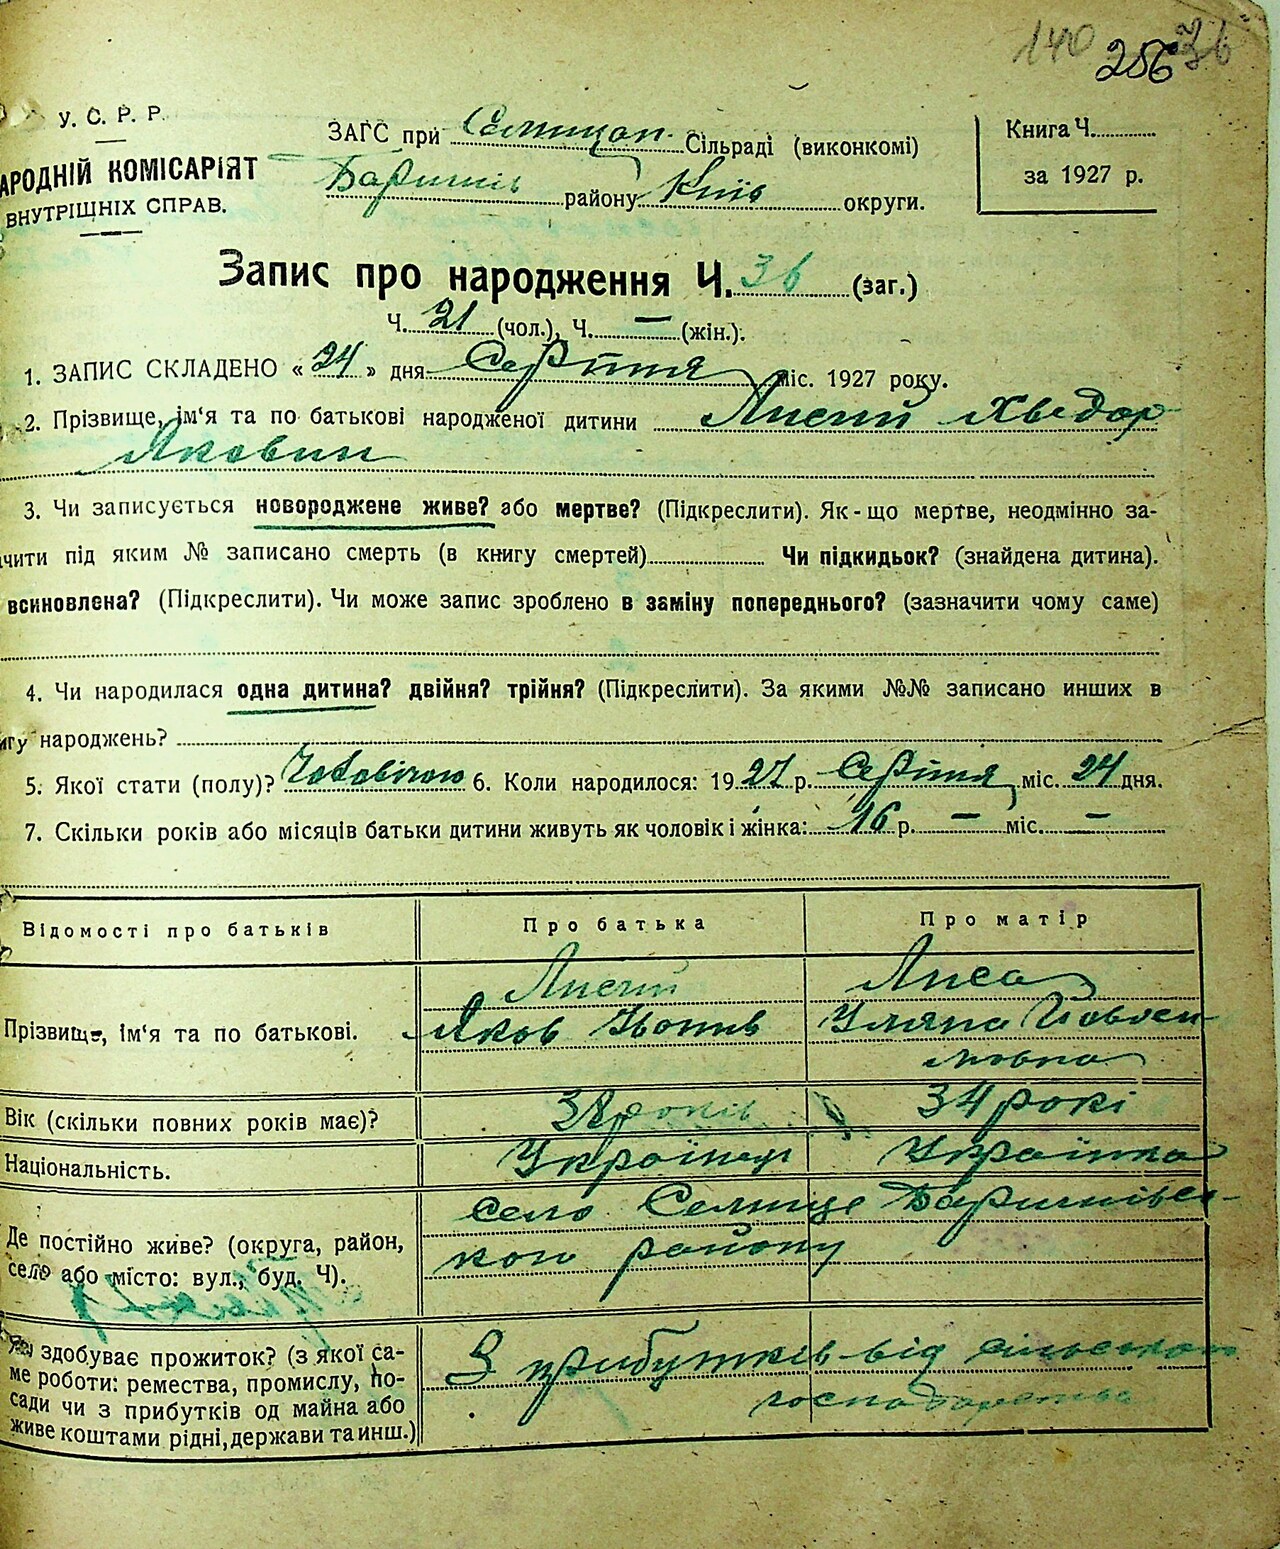 140 256 36
У. С. Р. Р.
АРОДНІЙ КОМІСАРІЯТ
ВНУТРІШНІХ СПРАВ.
ЗАГС при Селищан. Сільраді (виконкомі)
Баришів району Київ округи.
Книга Ч.
за 1927 р.
Запис про народження Ч. 36 (заг.)
Ч. 21 (чол.), Ч. — (жін.).
1. ЗАПИС СКЛАДЕНО «24» дня Серпня міс. 1927 року.
2. Прізвище, ім‘я та по батькові народженої дитини Лисий Хведор
Яковин
3. Чи записується новороджене живе? або мертве? (Підкреслити). Як-що мертве, неодмінно за-
чити під яким № записано смерть (в книгу смертей) Чи підкидьок? (знайдена дитина).
всиновлена? (Підкреслити). Чи може запис зроблено в заміну попереднього? (зазначити чому саме)
4. Чи народилася одна дитина? двійня? трійня? (Підкреслити). За якими №№ записано инших в
игу народжень?
5. Якої стати (полу)? Чоловічою 6. Коли народилося: 1927 р. Серпня міс. 24 дня.
7. Скільки років або місяців батьки дитини живуть як чоловік і жінка: 16 р. — міс. —
Відомості про батьків Про батька Про матір
Лисий Лиса
Прізвище, ім‘я та по батькові. Яков Уляна
мовна
Вік (скільки повних років має)? 38 років 34 рокі
Національність. Українець Українка
село Селище Баришівсь-
Де постійно живе? (округа, район, кого району
село або місто: вул., буд. Ч).
здобуває прожиток? (з якої са- З прибутків від сільського
ме роботи: ремества, промислу, по- господарства
сади чи з прибутків од майна або
живе коштами рідні, держави та инш.)